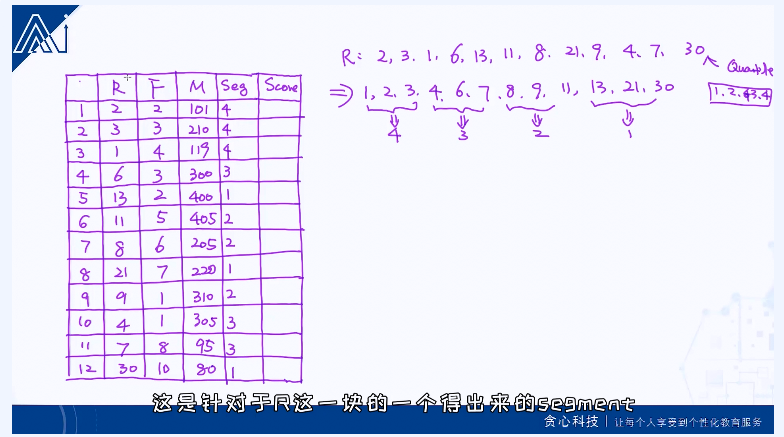 AI
R: 2, 3. 1, 6, 13, 11, 8. 21, 9, 4. 7, 30
⇒ 1, 2, 3. 4, 6, 7. 8, 9, 11, 13, 21, 30
1. 2. 3. 4
4 3 2 1
R F M Seg Score
1 2 2 101 4
2 3 3 210 4
3 1 4 119 4
4 6 3 300 3
5 13 2 400 1
6 11 5 405 2
7 8 6 205 2
8 21 7 220 1
9 9 1 310 2
10 4 1 305 3
11 7 8 95 3
12 30 10 80 1
这是针对于R这一块的一个得出来的segment
贪心科技 | 让每个人享受到个性化教育服务